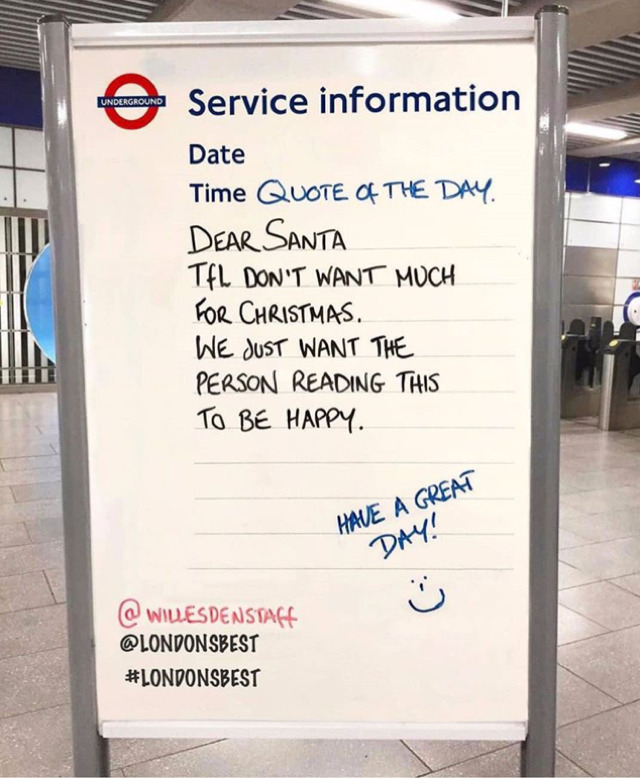 UNDERGROUND
Service information
Date
Time QUOTE Of THE DAY.
DEAR SANTA
TfL DON'T WANT MUCH
FOR CHRISTMAS.
WE JUST WANT THE
PERSON READING THIS
TO BE HAPPY.
HAVE A GREAT
DAY!
@WILLESDENSTAff
@LONDONSBEST
#LONDONSBEST